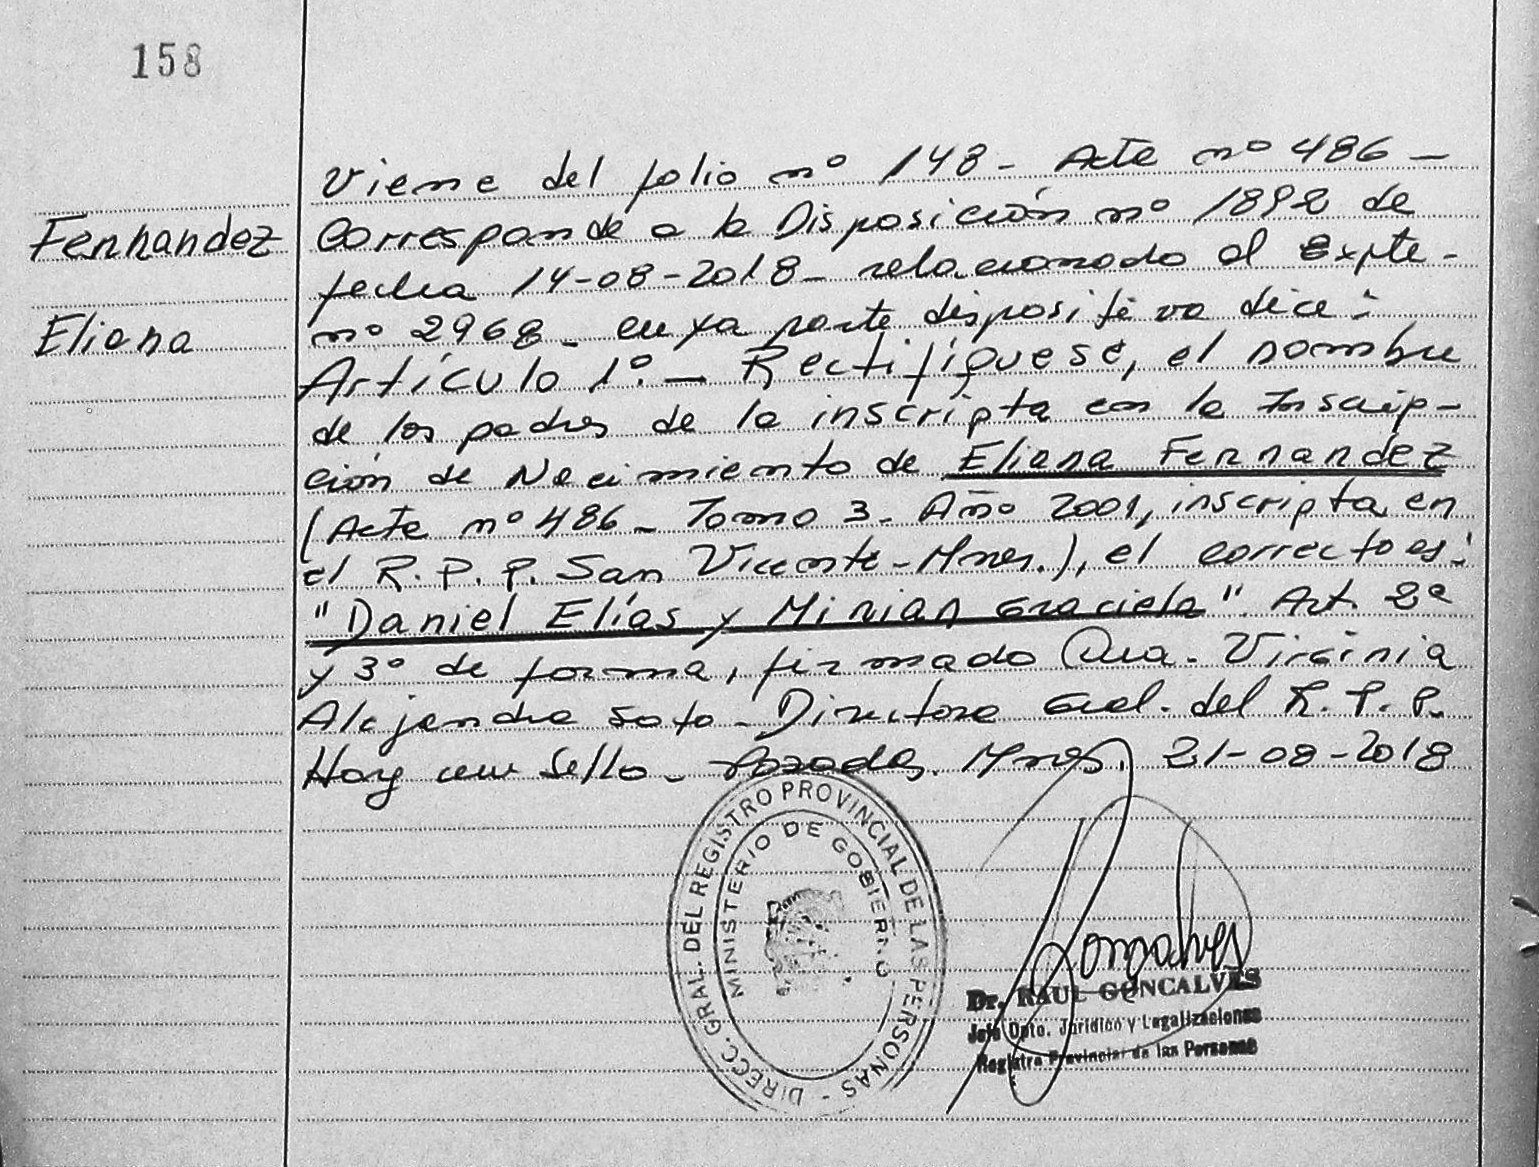 158
Fernandez
Eliana
Viene del folio nº 148 - Acta nº 486 -
Corresponde a la Disposición nº 1892 de
fecha 14-08-2018 - relacionado al Expte -
nº 2968 - cuya parte dispositiva dice:
Artículo 1º. - Rectifíquese, el nombre
de los padres de la inscripta en la Inscrip-
ción de Nacimiento de Eliana Fernandez
(Acta nº 486 - Tomo 3 - Año 2001, inscripta en
el R. P. P. San Vicente - Mnes.), el correcto es:
"Daniel Elías y Mirian Graciela". Art. 2º
y 3º de forma, firmado Dra. Virginia
Alejandra Soto - Directora Gral. del R. P. P.
Hay un Sello - Posadas. Mnes. 21-08-2018
DIRECC. GRAL. DEL REGISTRO PROVINCIAL DE LAS PERSONAS -
MINISTERIO DE GOBIERNO
Goncalves
Dr. RAUL GONCALVES
Jefe Dpto. Jurídico y Legalizaciones
Registro Provincial de las Personas